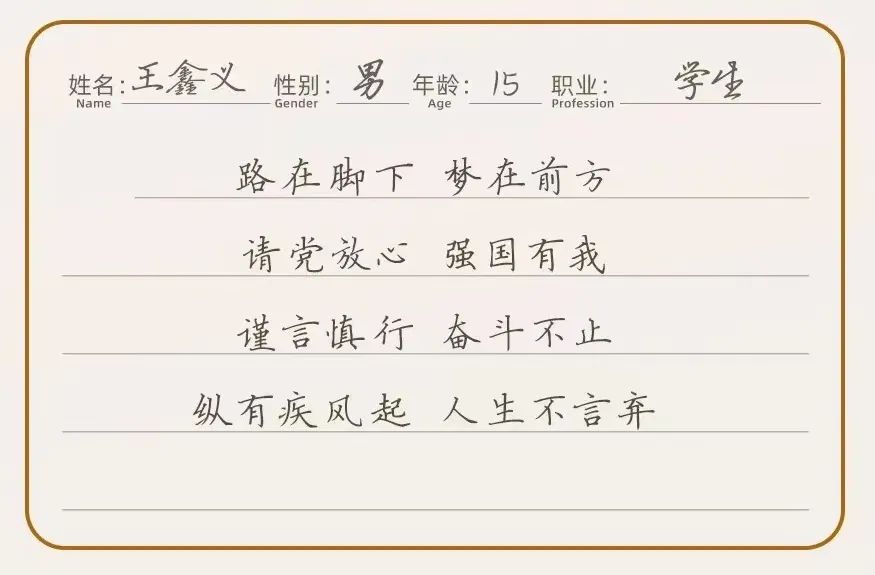 姓名：王鑫义 性别：男 年龄：15 职业：学生
Name Gender Age Profession
路在脚下 梦在前方
请党放心 强国有我
谨言慎行 奋斗不止
纵有疾风起 人生不言弃